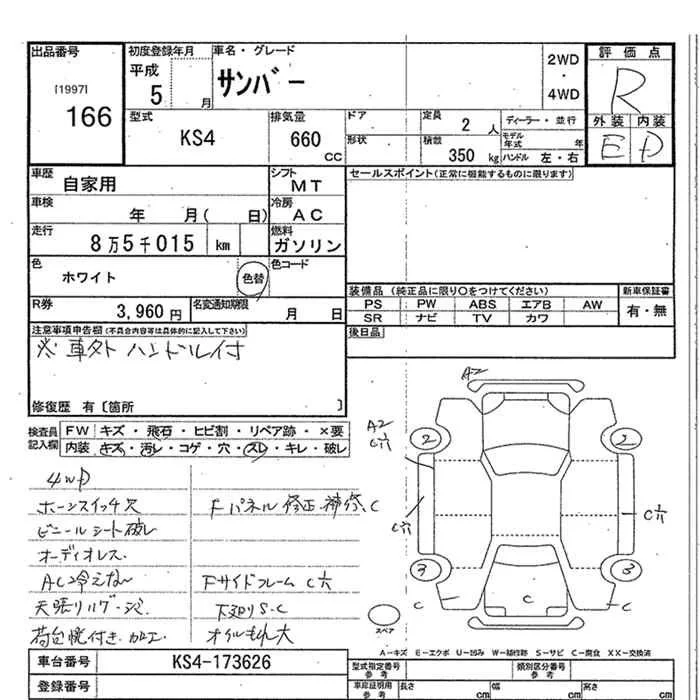 出品番号
[1997]
166
初度登録年月
平成
5 月
車名・グレード
サンバー
2WD
・
4WD
評価点
R
外装 内装
E D
型式
KS4
排気量
660
CC
ドア
形状
定員
2 人
積数
350 kg
ディーラー・並行
モデル
年式 年
ハンドル 左・右
車歴
自家用
シフト
MT
車検
年 月( 日)
冷房
AC
走行
8万5千015 km
燃料
ガソリン
色
ホワイト
色替
色コード
R券
3,960 円
名変通知期限
月 日
セールスポイント(正常に機能するものに限ります)
装備品 (純正品に限り○をつけてください)
PS PW ABS エアB AW
SR ナビ TV カワ
新車保証書
有・無
後日品
注意事項申告欄(不具合内容等は具体的に記入して下さい)
※車外ハンドル付
修復歴 有〔箇所 〕
検査員
記入欄
FW キズ・飛石・ヒビ割・リペア跡・×要
内装 キズ・汚レ・コゲ・穴・スレ・キレ・破レ
4WD
ホーンスイッチ穴
ビニールシート破レ
オーディオレス
AC冷えない
荷台焼付き・加工
Fパネル修正補修、C
Fサイドフレーム C穴
下廻りS.C
オイルもれ大
A2
A2
C穴
2
2
C穴
C穴
3
3
C
C
C
スペア
A−キズ E−エクボ U−凹ミ W−補修跡 S−サビ C−腐食 XX−交換済
車台番号
KS4-173626
登録番号
型式指定番号
参考
類別区分番号
参考
車庫証明用
参考
長さ cm
幅 cm
高さ cm